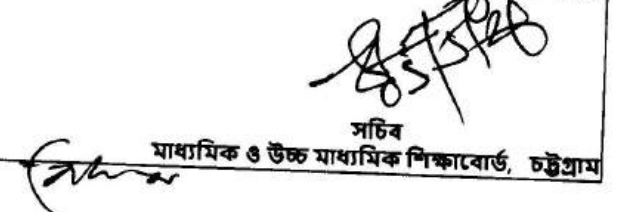 সচিব
মাধ্যমিক ও উচ্চ মাধ্যমিক শিক্ষাবোর্ড, চট্টগ্রাম